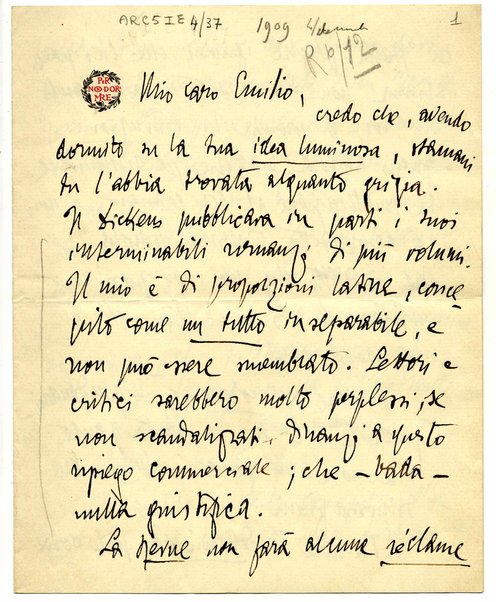 ARC5IE4/37
1909
1
R6/12
PER
NON DOR
MIRE
Mio caro Emilio,
credo che, avendo
dormito su la tua idea luminosa, stamani
tu l'abbia trovata alquanto grigia.
Il Dickens pubblicava in parti i suoi
interminabili romanzi di più volumi.
Il mio è di proporzioni latine, conce
pito come un tutto inseparabile, e
non può essere smembrato. Lettori e
critici sarebbero molto perplessi, se
non scandalizzati, dinanzi a questo
ripiego commerciale; che – bada –
nulla giustifica.
La Serve non farà alcune réclame